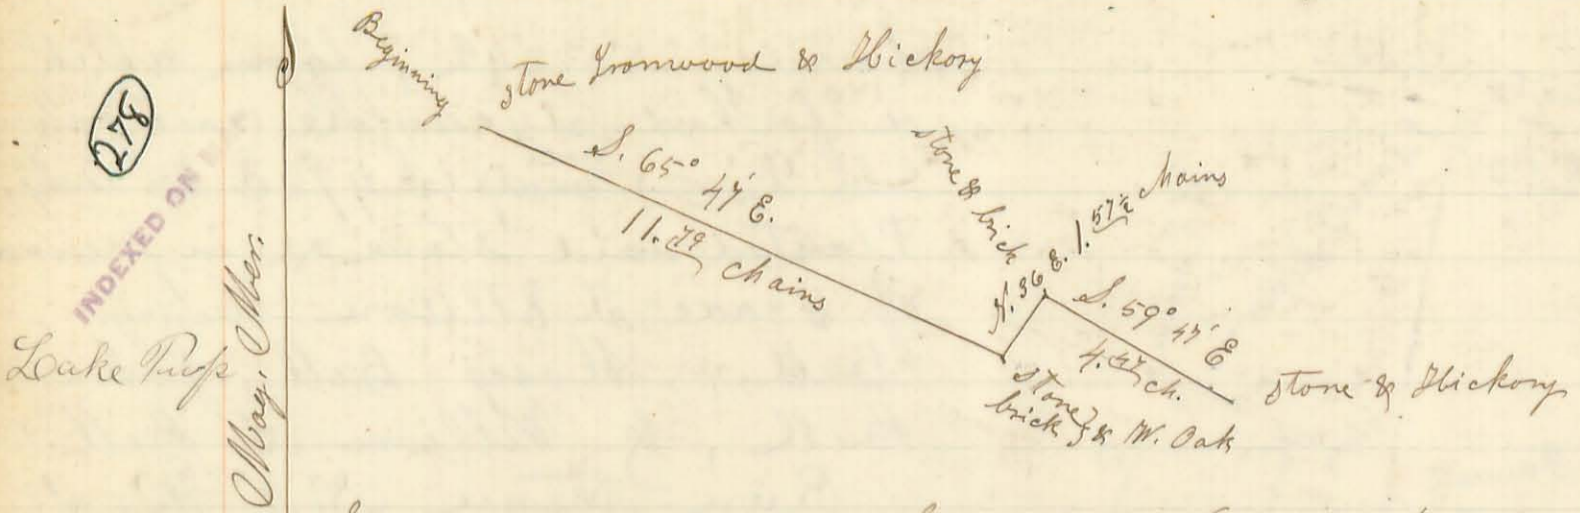 278
INDEXED ON
Lake Twp
Mag. Mer.
Beginning
stone Ironwood & Hickory
S. 65° 47' E.
11.79 chains
stone & brick
N. 36 E. 1.57½ chains
S. 59° 47' E
4. ch.
stone
brick } & W. Oak
stone & Hickory